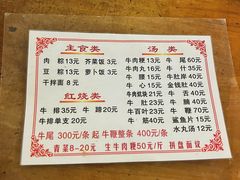 主食类
肉粽13元 芥菜饭3元
豆粽13元 萝卜饭3元
干拌面8元
红烧类
牛排35元 牛蹄20元
牛排单支20元
汤类
牛肉粳13元 牛尾60元
牛肉丸16元 牛什35元
牛腰35元 牛肚岸40元
牛心35元 金钱肚40元
牛肉饥筑21元 牛舌40元
牛百叶23元 牛鞭70元
牛肚22元 牛脑70元
牛筋45元 鲨鱼片15元
水丸汤12元
牛尾300元/条起 牛鞭整条400元/条
青菜8-20元 生牛肉粳50元/斤 拼盘面议